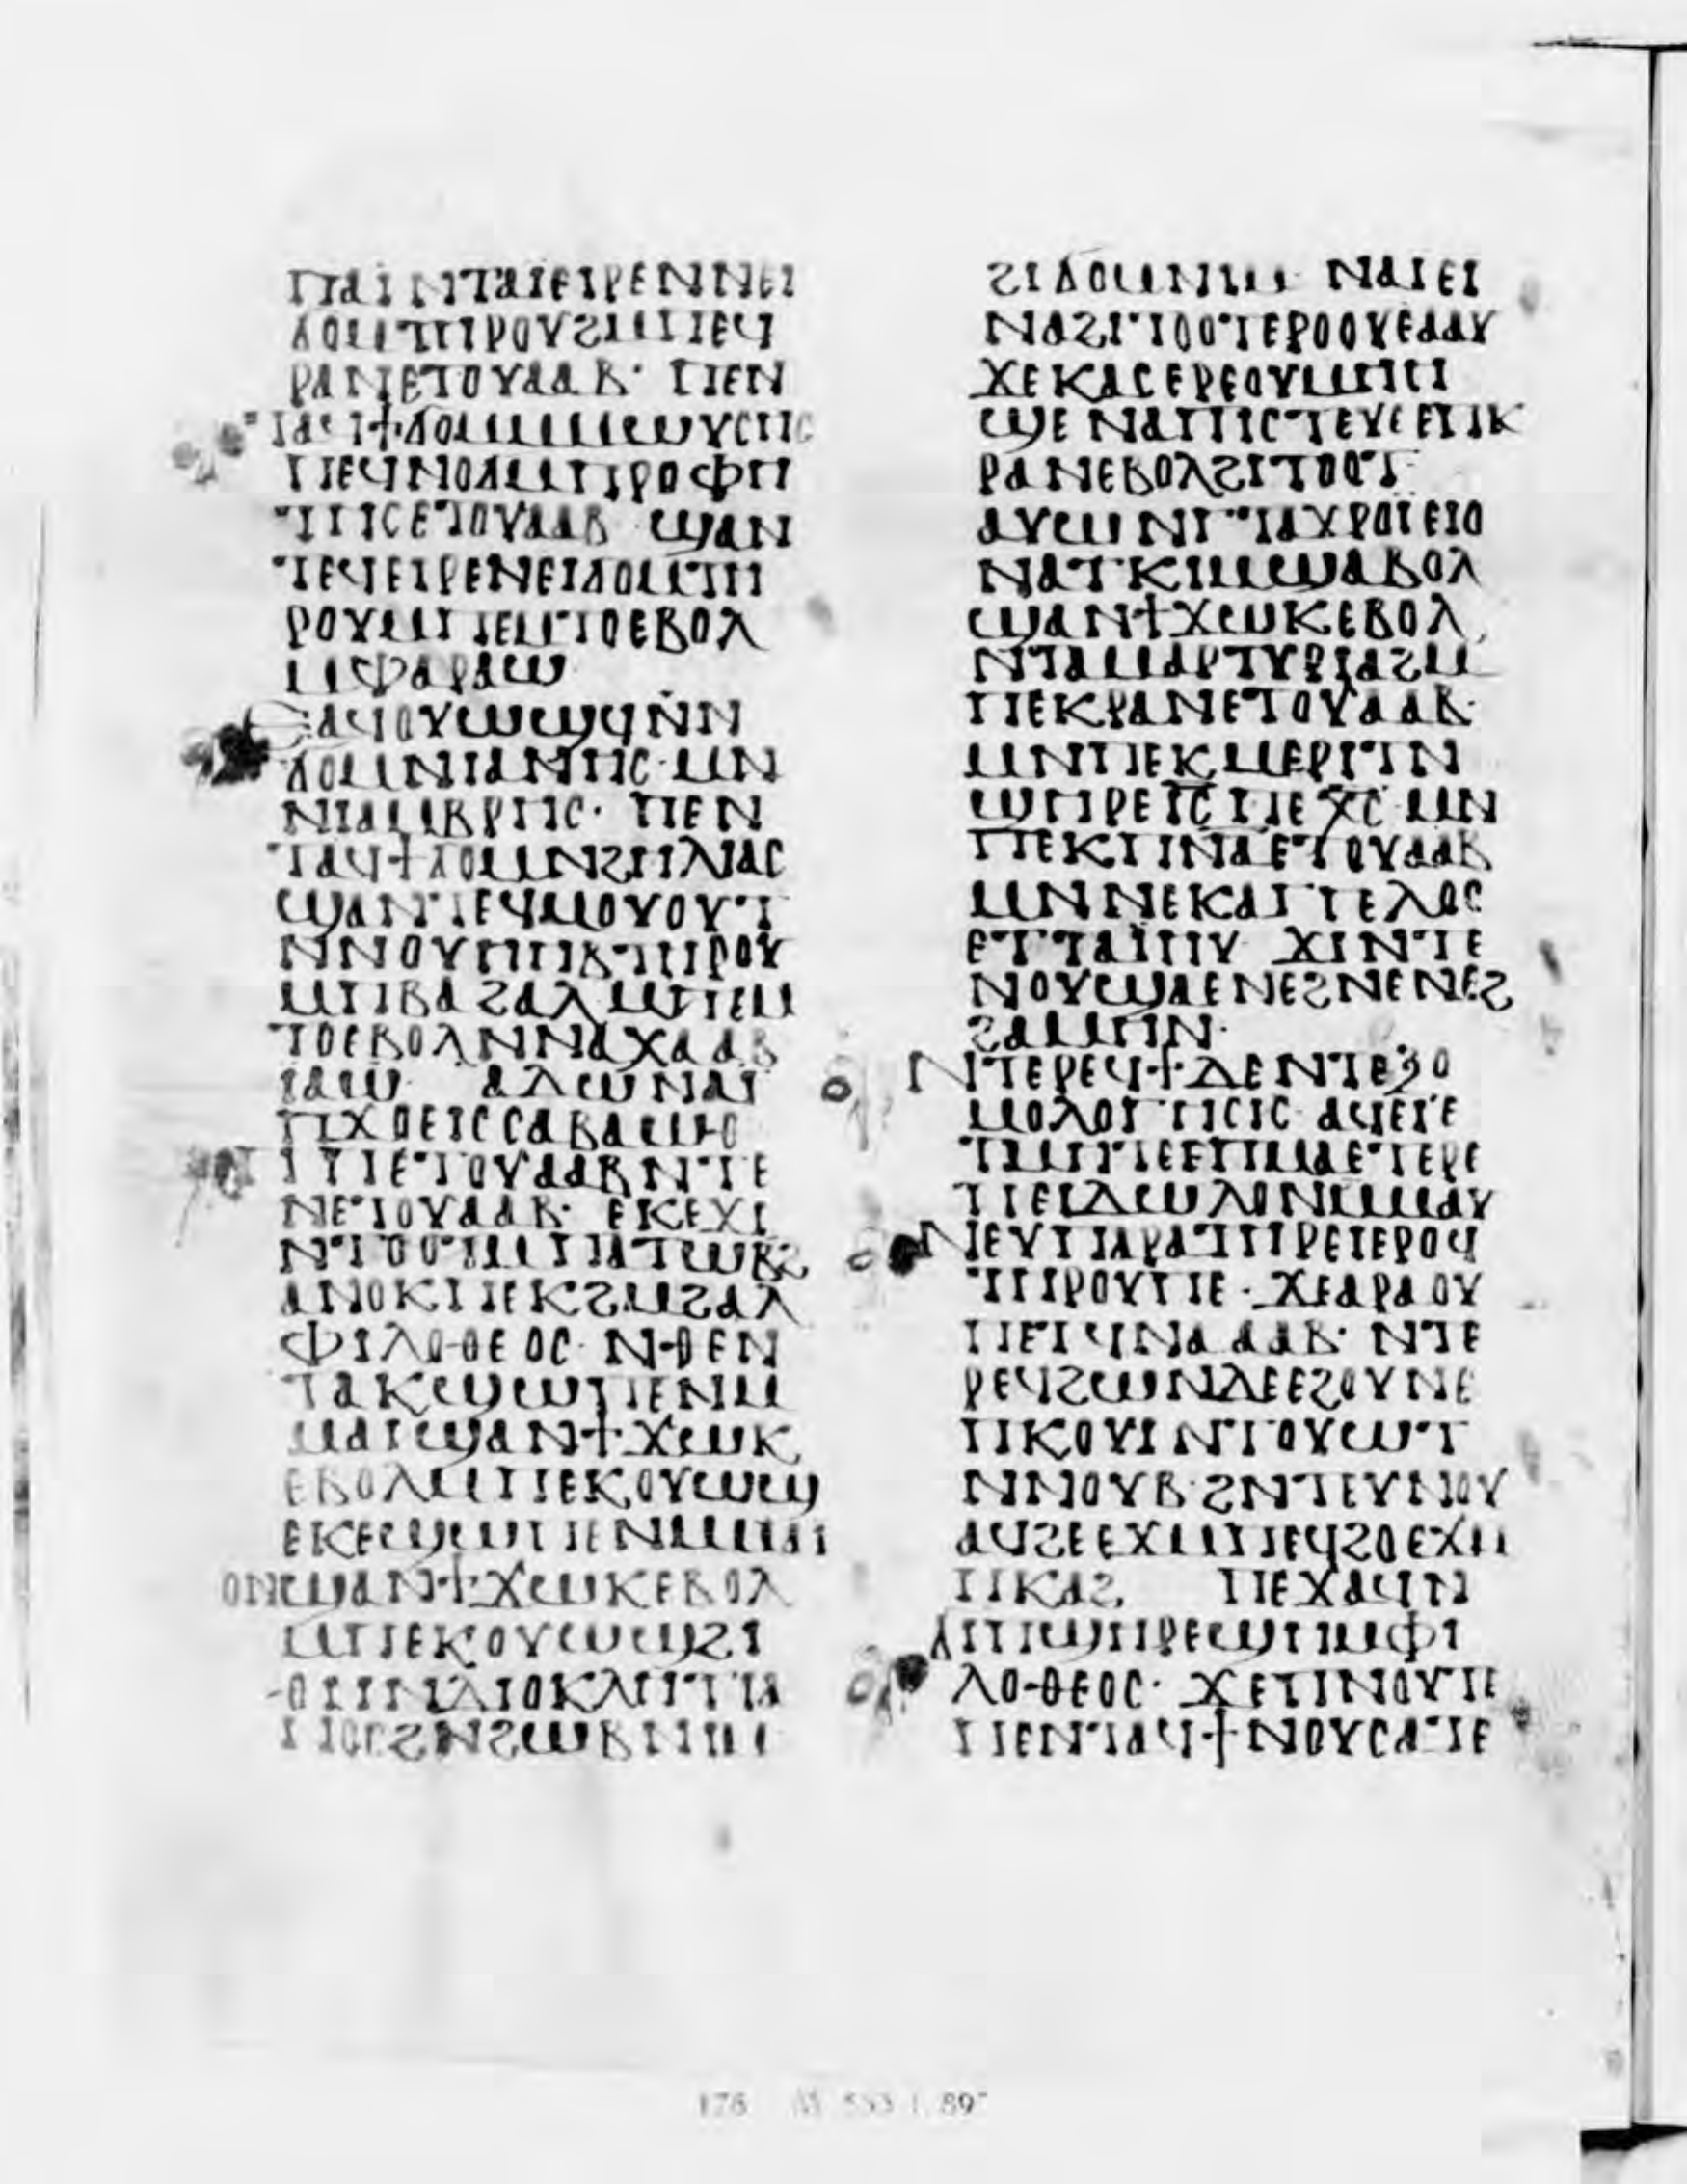 ⲡⲁⲓ ⲛⲧⲁⲓⲉⲓⲣⲉⲛⲛⲉⲓ
ϭⲟⲙⲧⲏⲣⲟⲩϩⲙⲡⲉϥ
ⲣⲁⲛⲉⲧⲟⲩⲁⲁⲃ· ⲡⲉⲛ
ⲧⲁϥϯϭⲟⲙⲙⲙⲱⲩⲥⲏⲥ
ⲡⲉϥⲛⲟϭⲙⲡⲣⲟⲫⲏ
ⲧⲏⲥⲉⲧⲟⲩⲁⲁⲃ ϣⲁⲛ
ⲧⲉϥⲉⲓⲣⲉⲛⲉⲓϭⲟⲙⲧⲏ
ⲣⲟⲩⲙⲡⲉⲙⲧⲟⲉⲃⲟⲗ
ⲙⲫⲁⲣⲁⲱ
ⲉⲁϥⲟⲩⲱϣϥⲛⲛ
ϭⲟⲙⲛⲓⲁⲛⲛⲏⲥ·ⲙⲛ
ⲛⲓⲁⲙⲃⲣⲏⲥ· ⲡⲉⲛ
ⲧⲁϥϯϭⲟⲙⲛϩⲏⲗⲓⲁⲥ
ϣⲁⲛⲧⲉϥⲙⲟⲩⲟⲩⲧ
ⲛⲛⲟⲩⲏⲏⲃⲧⲏⲣⲟⲩ
ⲙⲡⲃⲁϩⲁⲗ ⲙⲡⲉⲙ
ⲧⲟⲉⲃⲟⲗⲛⲛⲁⲭⲁⲁⲃ
ⲓⲁⲱ ⲁⲇⲱⲛⲁⲓ
ⲡϫⲟⲉⲓⲥⲥⲁⲃⲁⲱⲑ
ⲡⲉⲧⲟⲩⲁⲁⲃⲛⲧⲉ
ⲛⲉⲧⲟⲩⲁⲁⲃ· ⲉⲕⲉϫⲓ
ⲛⲧⲟⲟⲧⲙⲡⲁⲧⲱⲃϩ
ⲁⲛⲟⲕⲡⲉⲕϩⲙϩⲁⲗ
ⲫⲓⲗⲟⲑⲉⲟⲥ· ⲛⲑⲉⲛ
ⲧⲁⲕϣⲱⲡⲉⲛⲙ
ⲙⲁⲓϣⲁⲛϯϫⲱⲕ
ⲉⲃⲟⲗⲙⲡⲉⲕⲟⲩⲱϣ
ⲉⲕⲉϣⲱⲡⲉⲛⲙⲙⲁⲓ
ⲟⲛϣⲁⲛϯϫⲱⲕⲉⲃⲟⲗ
ⲙⲡⲉⲕⲟⲩⲱϣϩⲓ
ⲑⲏⲛⲇⲓⲟⲕⲗⲏⲧⲓⲁ
ⲛⲟⲥϩⲛϩⲱⲃⲛⲓⲙ
ϩⲓϭⲟⲙⲛⲓⲙ ⲛⲁⲓⲉⲓ
ⲛⲁϩⲓⲧⲟⲟⲧⲉⲣⲟⲟⲩⲉⲁⲁⲩ
ϫⲉⲕⲁⲥⲉⲣⲉⲟⲩⲙⲏⲏ
ϣⲉ ⲛⲁⲡⲓⲥⲧⲉⲩⲉⲉⲡⲉⲕ
ⲣⲁⲛⲉⲃⲟⲗϩⲓⲧⲟⲟⲧ
ⲁⲩⲱ ⲛⲅⲧⲁϫⲣⲟⲓⲉⲓⲟ
ⲛⲁⲧⲕⲓⲙϣⲁⲃⲟⲗ
ϣⲁⲛϯϫⲱⲕⲉⲃⲟⲗ
ⲛⲧⲁⲙⲁⲣⲧⲩⲣⲓⲁϩⲙ
ⲡⲉⲕⲣⲁⲛⲉⲧⲟⲩⲁⲁⲃ·
ⲙⲛⲡⲉⲕⲙⲉⲣⲓⲧⲛ
ϣⲏⲣⲉⲓⲥ ⲡⲉⲭⲥ ⲙⲛ
ⲡⲉⲕⲡⲛⲁⲉⲧⲟⲩⲁⲁⲃ
ⲙⲛⲛⲉⲕⲁⲅⲅⲉⲗⲟⲥ
ⲉⲧⲧⲁⲓⲏⲩ ϫⲓⲛⲧⲉ
ⲛⲟⲩϣⲁⲉⲛⲉϩⲛⲉⲛⲉϩ
ϩⲁⲙⲏⲛ·
ⲛⲧⲉⲣⲉϥϯⲇⲉⲛⲧⲉϩⲟ
ⲙⲟⲗⲟⲅⲏⲥⲓⲥ ⲁϥⲉⲓⲉ
ⲧⲙⲏⲧⲉⲉⲡⲙⲁⲉⲧⲉⲣⲉ
ⲡⲉⲓⲇⲱⲗⲟⲛⲙⲙⲁⲩ
ⲛⲉⲩⲡⲁⲣⲁⲧⲏⲣⲉⲓⲉⲣⲟϥ
ⲧⲏⲣⲟⲩⲡⲉ· ϫⲉⲁⲣⲁⲟⲩ
ⲡⲉⲧϥⲛⲁⲁⲁϥ· ⲛⲧⲉ
ⲣⲉϥϩⲱⲛⲇⲉⲉϩⲟⲩⲛⲉ
ⲡⲕⲟⲩⲓ ⲛⲧⲟⲩⲱⲧ
ⲛⲛⲟⲩⲃ·ϩⲛⲧⲉⲩⲛⲟⲩ
ⲁϥϩⲉⲉϫⲙⲡⲉϥϩⲟⲉϫⲙ
ⲡⲕⲁϩ, ⲡⲉϫⲁϥⲛ
ϭⲓⲡϣⲏⲣⲉϣⲏⲙⲫⲓ
ⲗⲟⲑⲉⲟⲥ· ϫⲉⲡⲛⲟⲩⲧⲉ
ⲡⲉⲛⲧⲁϥϯⲛⲟⲩⲥⲁⲧⲉ